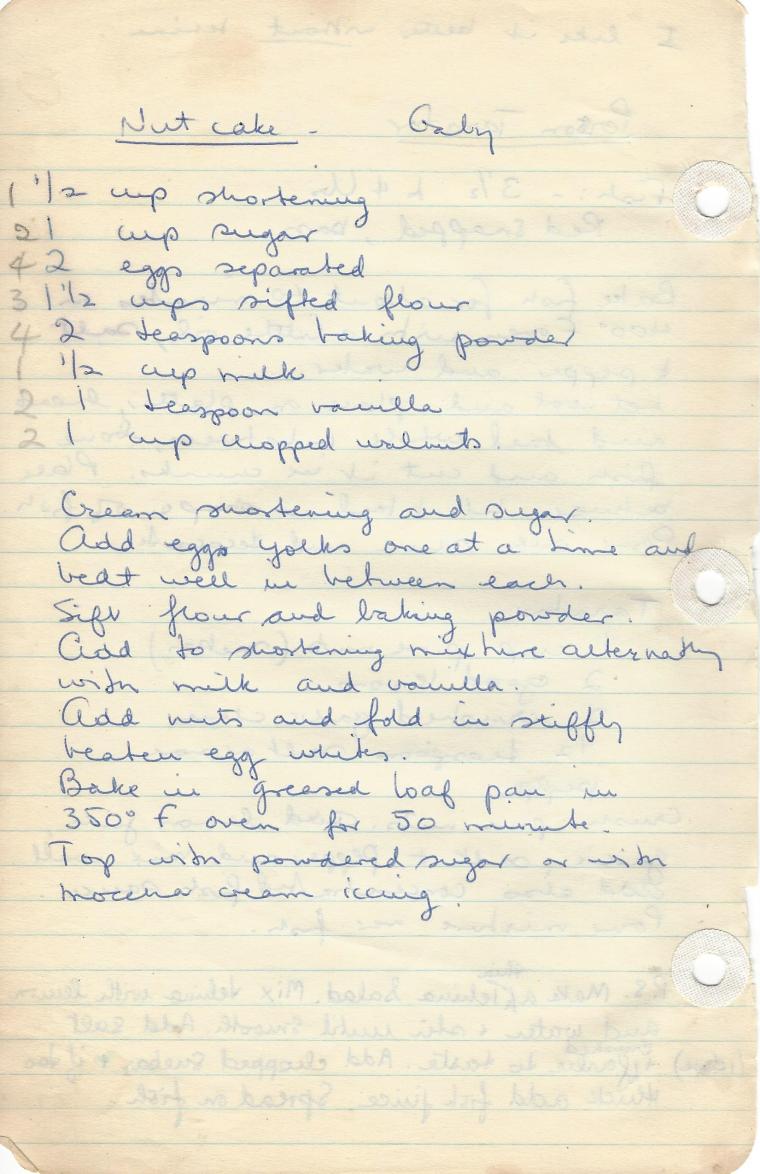 Nut cake - Gaby
1 1/2 cup shortening
2 1 cup sugar
4 2 eggs separated
3 1 1/2 cups sifted flour
4 2 teaspoons baking powder
1 1/2 cup milk
2 1 teaspoon vanilla
2 1 cup chopped walnuts.
Cream shortening and sugar.
Add eggs yolks one at a time and
beat well in between each.
Sift flour and baking powder.
Add to shortening mixture alternatly
with milk and vanilla.
Add nuts and fold in stiffly
beaten egg whites.
Bake in greased loaf pan in
350° F oven for 50 minute.
Top with powdered sugar or with
mocca cream iccing.